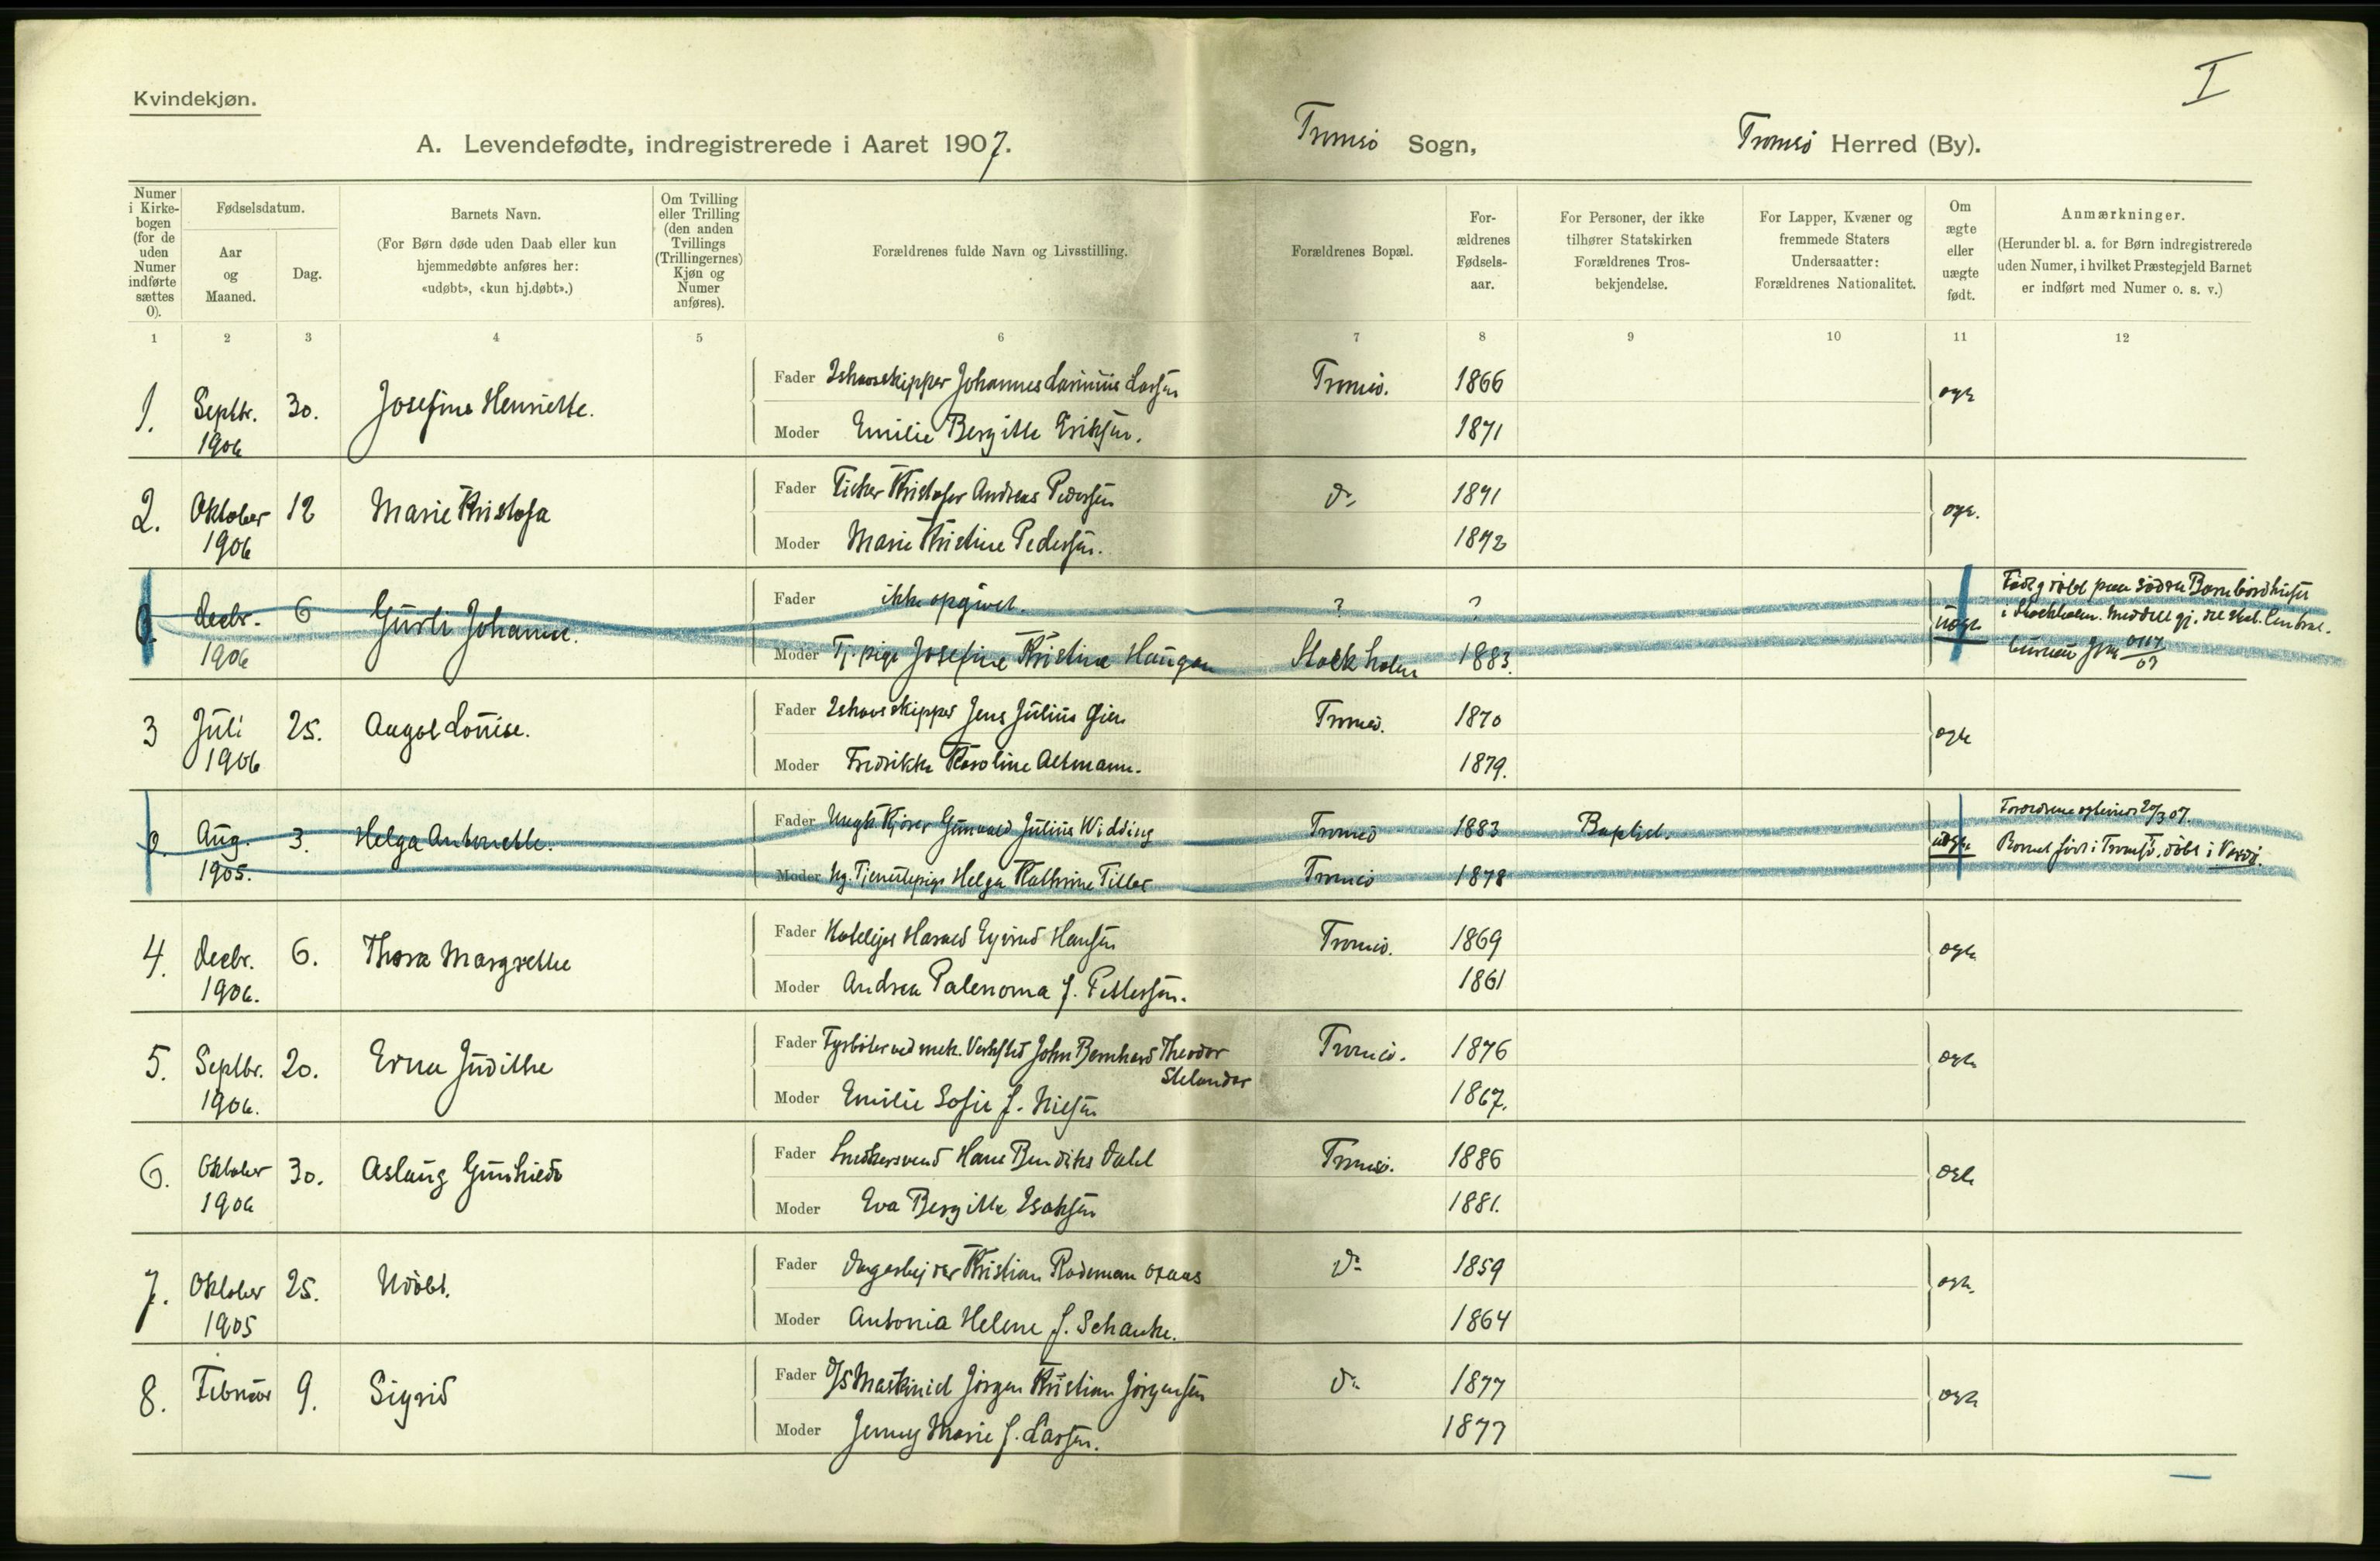 I
Kvindekjøn.
A. Levendefødte, indregistrerede i Aaret 1907. Tromsö Sogn, Tromsö Herred (By).
Numer i Kirke-bogen (for de uden Numer indførte sættes 0).
Fødselsdatum.
Aar og Maaned.
Dag.
Barnets Navn.
(For Børn døde uden Daab eller kun
hjemmedøbte anføres her:
«udøbt», «kun hj.døbt».)
Om Tvilling
eller Trilling
(den anden
Tvillings
(Trillingernes)
Kjøn og
Numer
anføres).
Forældrenes fulde Navn og Livsstilling.
Forældrenes Bopæl.
For-
ældrenes
Fødsels-
aar.
For Personer, der ikke
tilhører Statskirken
Forældrenes Tros-
bekjendelse.
For Lapper, Kvæner og
fremmede Staters
Undersaatter:
Forældrenes Nationalitet.
Om
ægte
eller
uægte
født.
Anmærkninger.
(Herunder bl. a. for Børn indregistrerede
uden Numer, i hvilket Præstegjeld Barnet
er indført med Numer o. s. v.)
1 2 3 4 5 6 7 8 9 10 11 12
1. Septbr. 1906 30. Josefine Henriette.
Fader Ishavsskipper Johannes Larsen Tromsö. 1866 ægte
Moder Emilie Bergitte Eriksen. 1871
2. Oktober 1906 12 Marie Kristofa
Fader Fisker Kristofer Andreas Pedersen do 1871 ægte.
Moder Marie Kristine Pedersen. 1872
0. Decbr. 1906 6 Gurli Johanne.
Fader ikke opgivet. ? ? uægte
Moder Tj.pige Josefine Kristine Haugen Stockholm 1883.
Född og döbt paa Södra Barnbördshuset
i Stockholm. Meddelt gj. det stat. Central-
bureau
3 Juli 1906 25. Louise.
Fader Ishavsskipper Jens Julius Tromsö. 1870 ægte
Moder Fredrikke Karoline 1879.
0. Aug. 1905. 3. Helga Antonette.
Fader Ungk. Julius Widding Tromsö 1883 Baptist. uægte
Moder Ug. Tjenestepige Helga Kathrine Tiller Tromsö 1878
Forældrene 20/3 07.
Barnet född i Tromsö, döbt i Vardö.
4. Decbr. 1906. 6. Thora Margrethe
Fader Harald Eyvind Hansen Tromsö. 1869 ægte
Moder Andrea f. Pettersen. 1861
5. Septbr. 1906. 20. Erna Judithe
Fader Fyrböter ved mek. Verksted John Bernhard Theodor
Stelander Tromsö. 1876 ægte
Moder Emilie Sofie f. Nilsen 1867.
6. Oktober 1906 30. Aslaug Gunhild
Fader Snedkersvend Hans Bendiks Dahl Tromsö. 1886 ægte
Moder Eva Bergitte Isaksen 1881.
7. Oktober 1905 25. Udöbt.
Fader Kristian do 1859 ægte.
Moder Antonia Helene f. Schanke. 1864
8. Februar 9. Sigrid
Fader D/S Maskinist Jörgen Kristian Jörgensen do 1877 ægte
Moder Jenny Marie f. Larsen. 1877